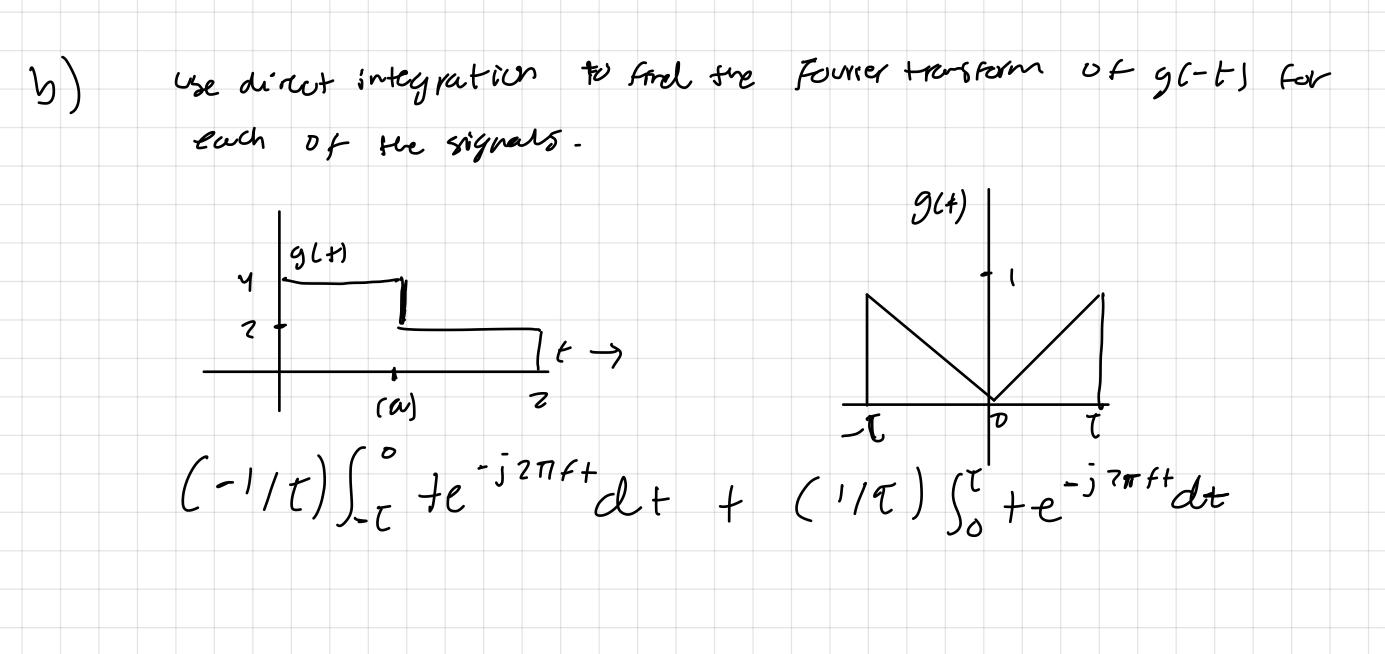 b) use direct integration to find the Fourier transform of g(-t) for
each of the signals.
g(t)
4
2
t →
(a)
2
g(t)
1
-τ
0
τ
(-1/τ) ∫_{-τ}^{0} te^{-j2πft} dt + (1/τ) ∫_{0}^{τ} te^{-j2πft} dt